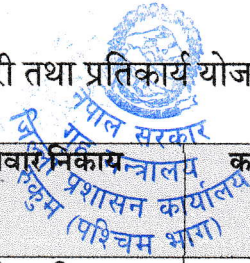 री तथा प्रतिकार्य योज
नेपाल सरकार
गृह मन्त्रालय
जिल्ला प्रशासन कार्यालय
रुकुम (पश्चिम भाग)
वार निकाय
क